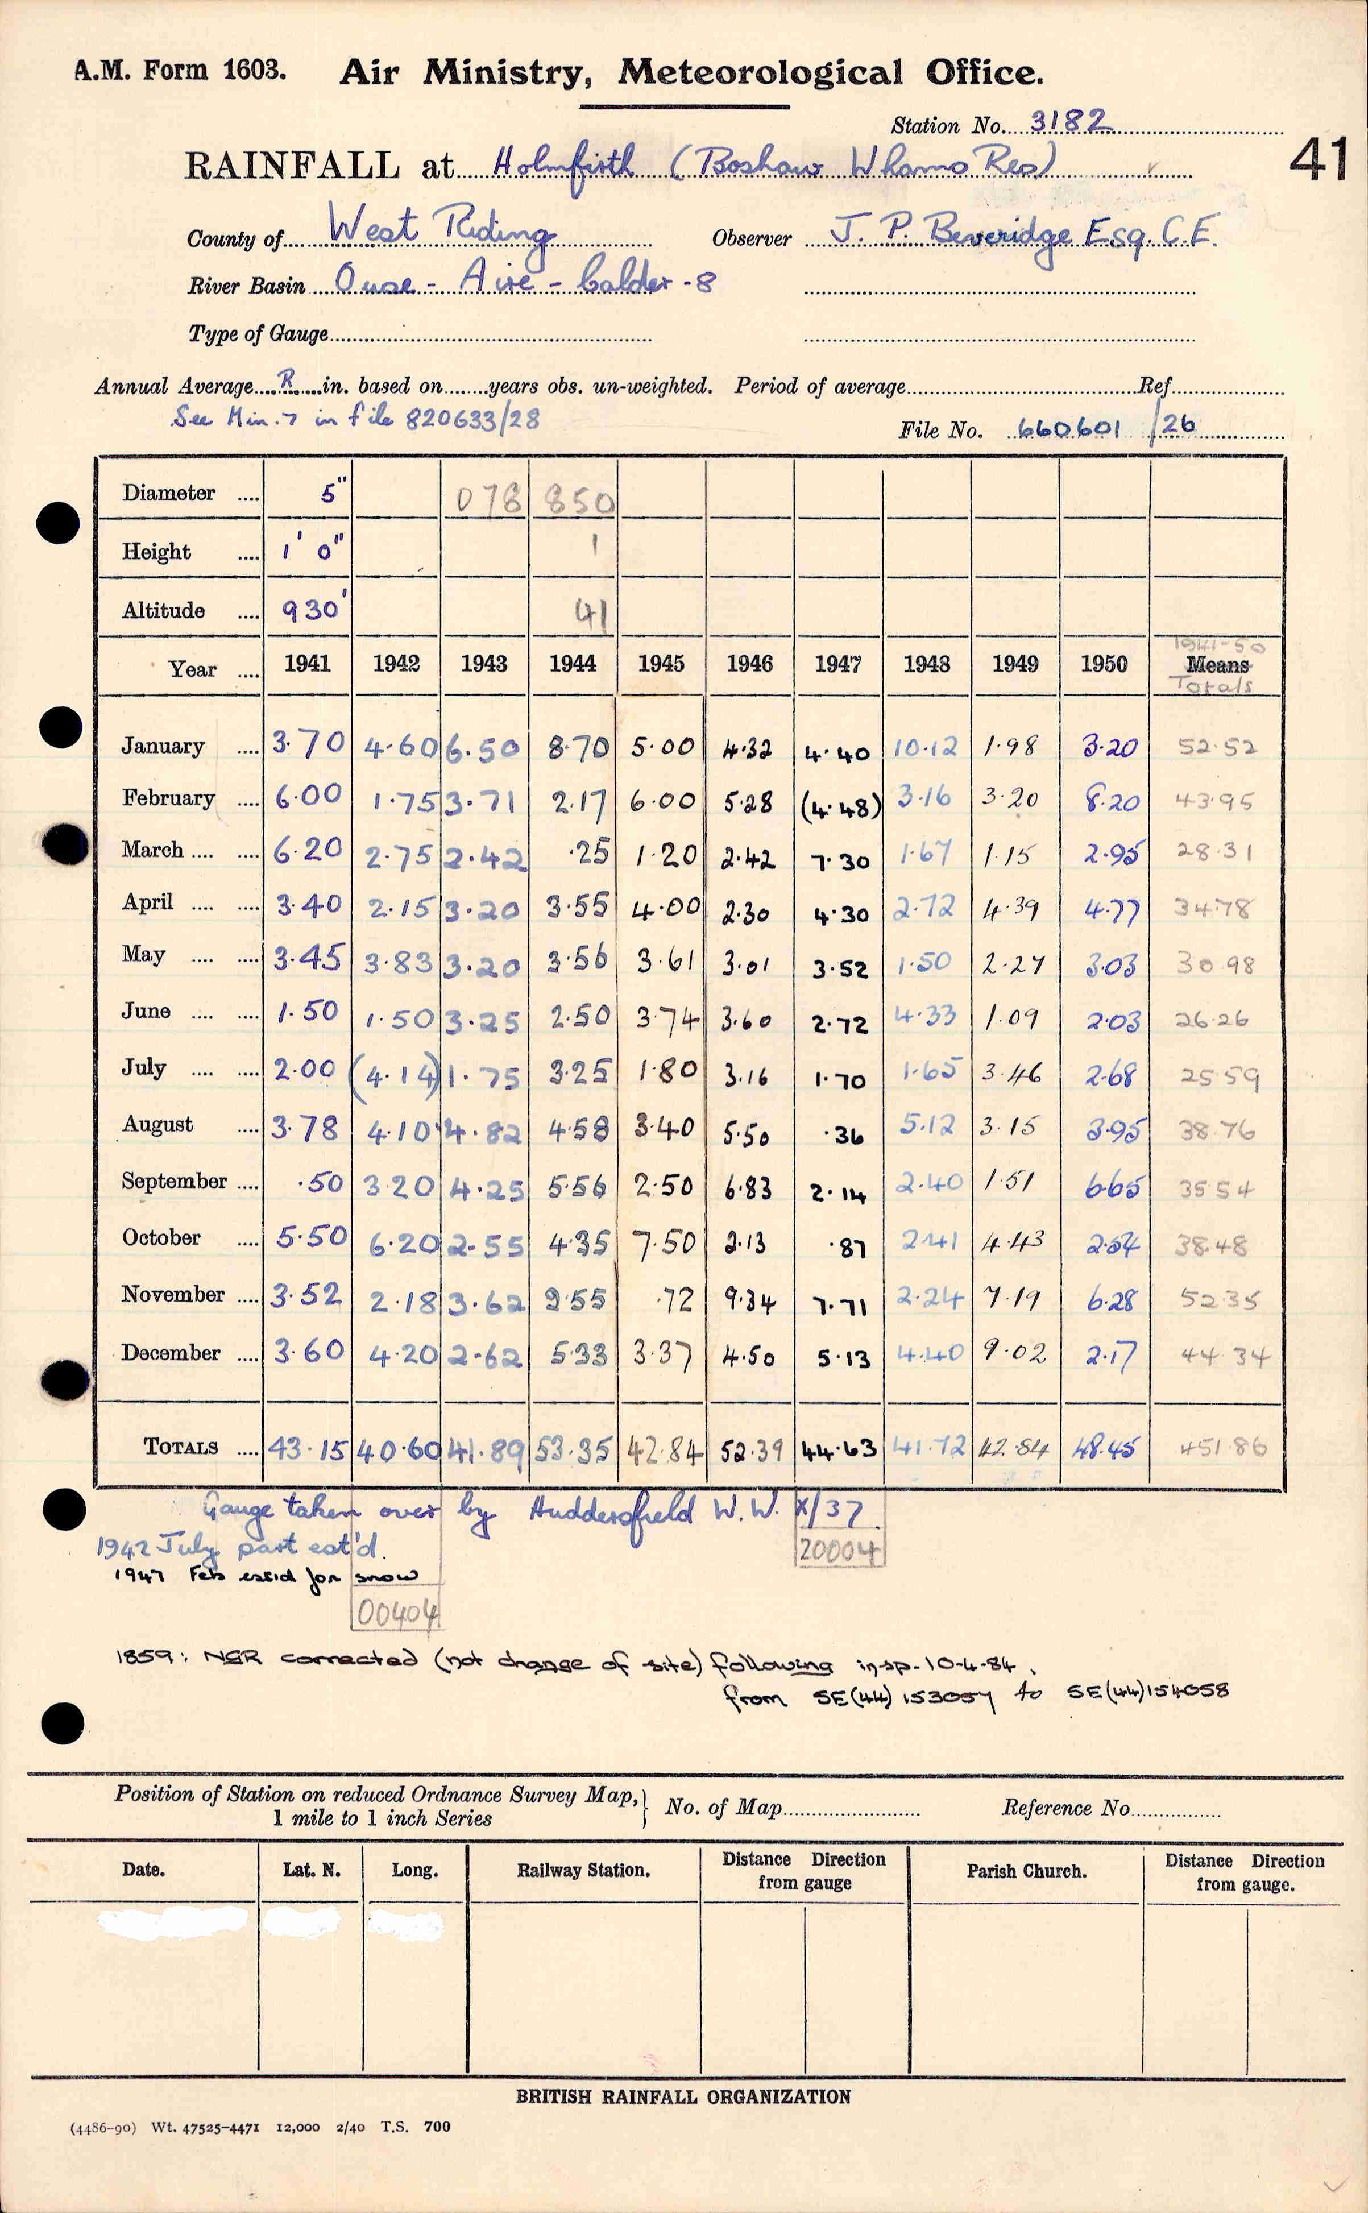 A.M. Form 1603. Air Ministry, Meteorological Office.
Station No. 3182
41
RAINFALL at Holmfirth (Boshaw Whams Res)
County of West Riding Observer J. P. Beveridge Esq. C.E.
River Basin Ouse - Aire - Calder - 8
Type of Gauge
Annual Average R in. based on years obs. un-weighted. Period of average Ref.
See Min. 7 in file 820633/28
File No. 660601/26
Diameter .... 5" 078 850
Height .... 1' 0" 1
Altitude .... 930' 41
1941-50
Year .... 1941 1942 1943 1944 1945 1946 1947 1948 1949 1950 Means
Totals
January .... 3.70 4.60 6.50 8.70 5.00 4.32 4.40 10.12 1.98 3.20 52.52
February .... 6.00 1.75 3.71 2.17 6.00 5.28 (4.48) 3.16 3.20 8.20 43.95
March .... .... 6.20 2.75 2.42 .25 1.20 2.42 7.30 1.67 1.15 2.95 28.31
April .... .... 3.40 2.15 3.20 3.55 4.00 2.30 4.30 2.72 4.39 4.77 34.78
May .... .... 3.45 3.83 3.20 3.56 3.61 3.01 3.52 1.50 2.27 3.03 30.98
June .... .... 1.50 1.50 3.25 2.50 3.74 3.60 2.72 4.33 1.09 2.03 26.26
July .... .... 2.00 (4.14) 1.75 3.25 1.80 3.16 1.70 1.65 3.46 2.68 25.59
August .... 3.78 4.10 4.82 4.58 3.40 5.50 .36 5.12 3.15 3.95 38.76
September .... .50 3.20 4.25 5.56 2.50 6.83 2.14 2.40 1.51 6.65 35.54
October .... 5.50 6.20 2.55 4.35 7.50 2.13 .87 2.41 4.43 2.54 38.48
November .... 3.52 2.18 3.62 9.55 .72 9.34 7.71 2.24 7.19 6.28 52.35
December .... 3.60 4.20 2.62 5.33 3.37 4.50 5.13 4.40 9.02 2.17 44.34
TOTALS .... 43.15 40.60 41.89 53.35 42.84 52.39 44.63 41.72 42.84 48.45 451.86
Gauge taken over by Huddersfield W.W. X/37.
1942 July part est'd. 20004
1947 Feb estd for snow
00404
1859: NGR corrected (not change of site) following insp. 10-4-84,
from SE(44)153057 to SE(44)154058
Position of Station on reduced Ordnance Survey Map, } No. of Map Reference No.
1 mile to 1 inch Series
Date. Lat. N. Long. Railway Station. Distance from gauge Direction Parish Church. Distance Direction from gauge.
BRITISH RAINFALL ORGANIZATION
(4486-90) Wt. 47525-4471 12,000 2/40 T.S. 700